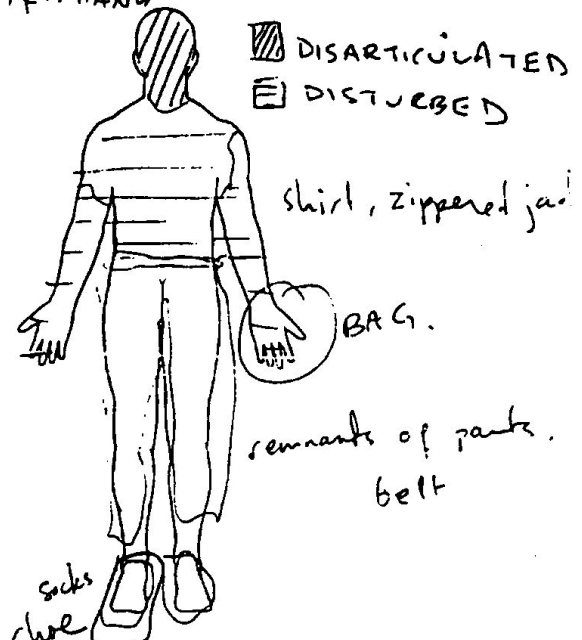 DISARTICULATED
DISTURBED
shirt, zippered
BAG.
remnants of pants.
belt
socks
shoe